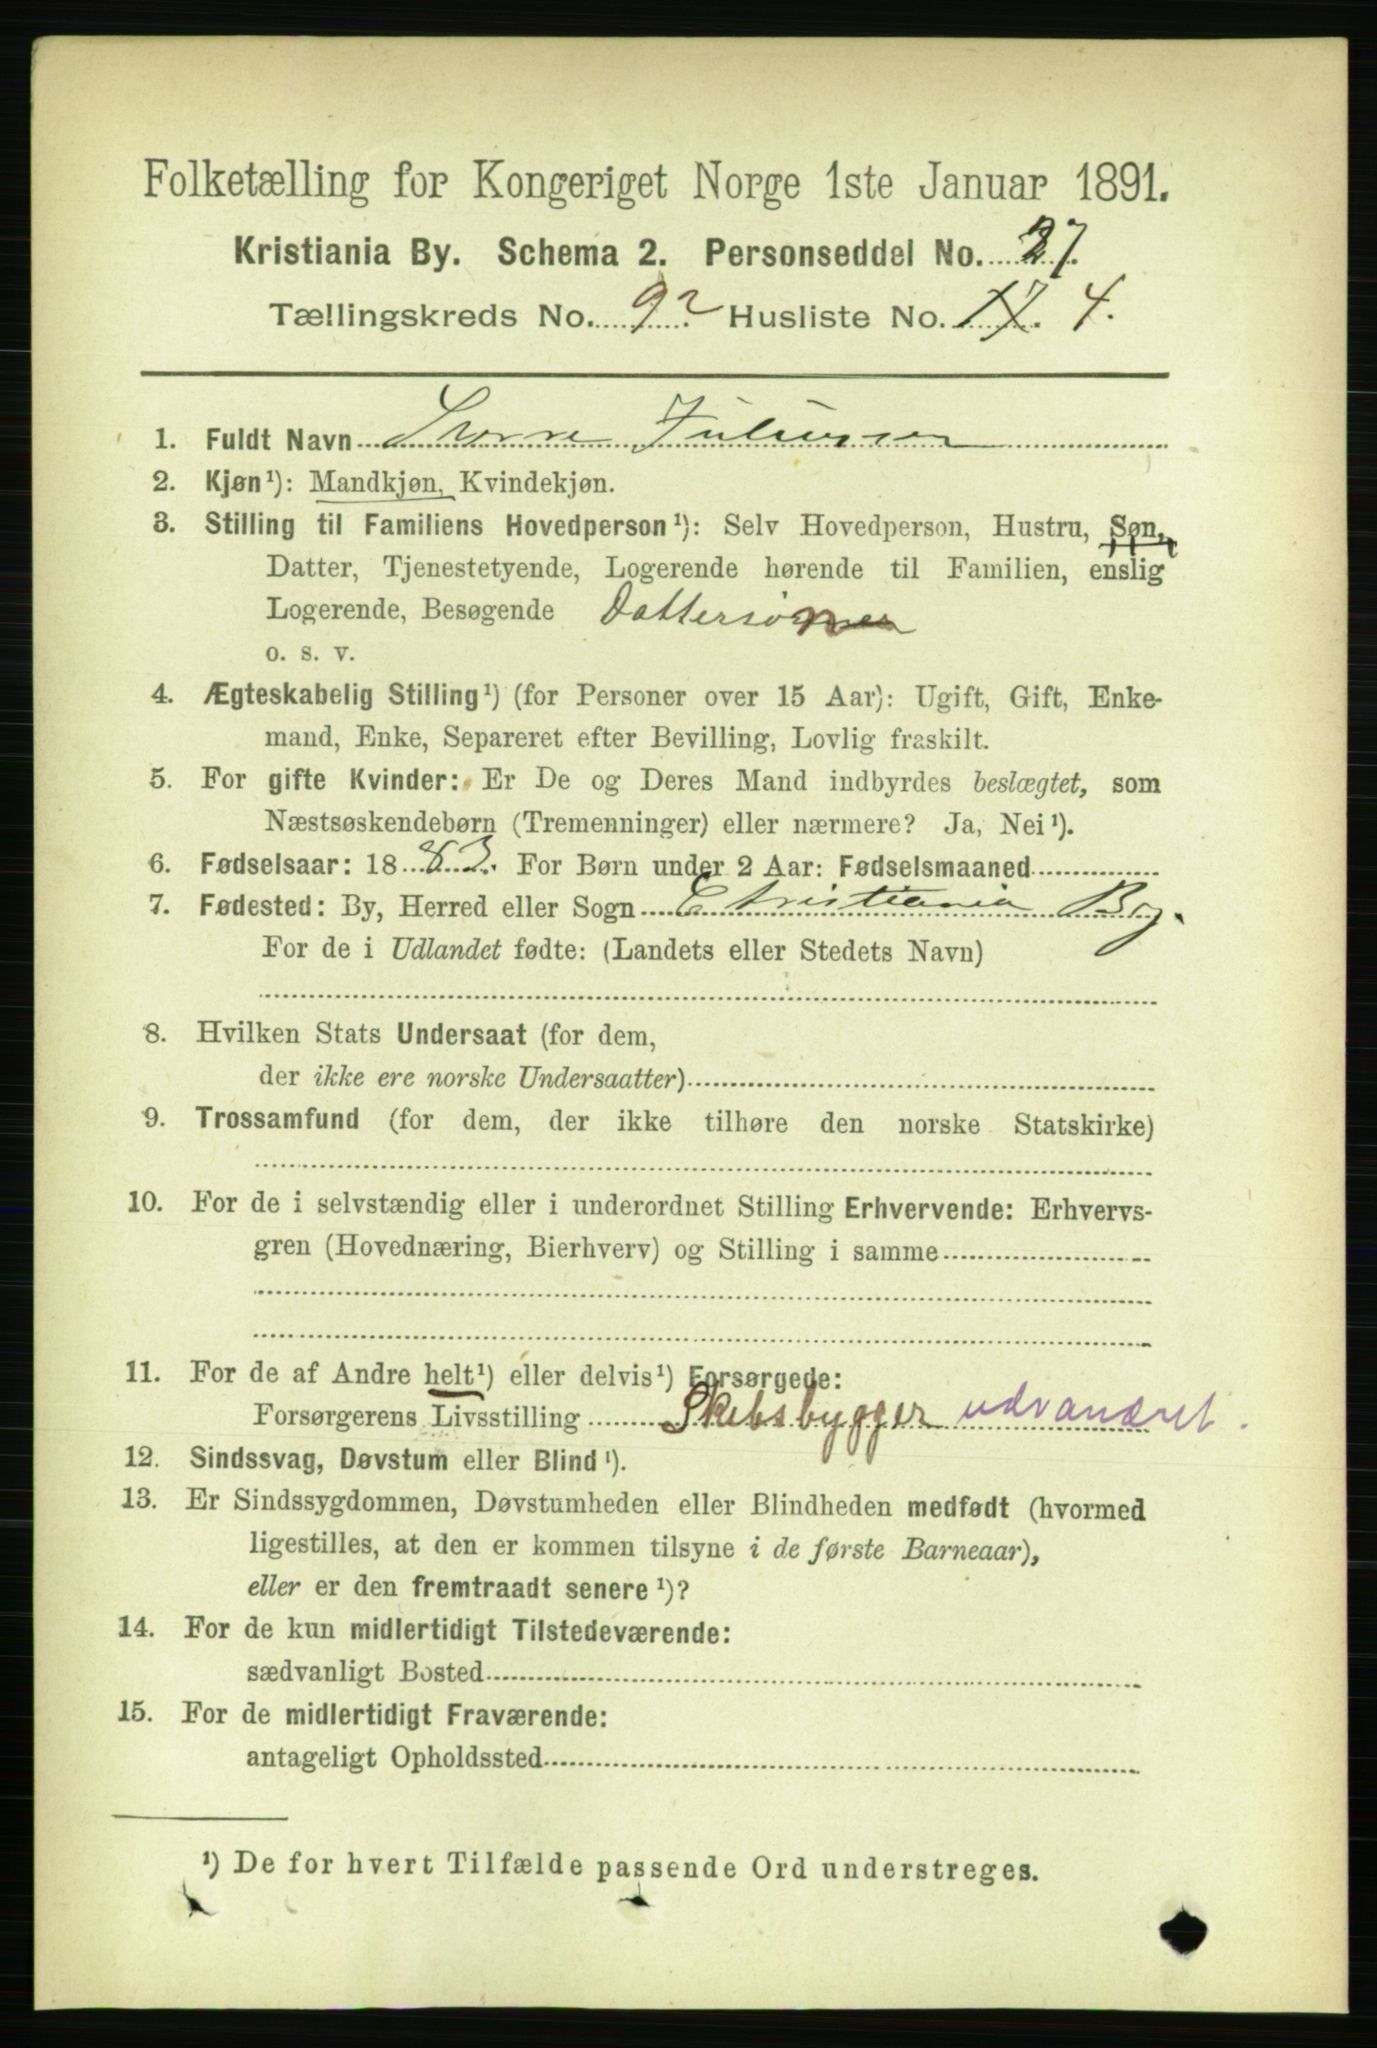 Folketælling for Kongeriget Norge 1ste Januar 1891.
Kristiania By. Schema 2. Personseddel No. 27.
Tællingskreds No. 92 Husliste No. 4.
1. Fuldt Navn
2. Kjøn¹): Mandkjøn, Kvindekjøn.
3. Stilling til Familiens Hovedperson¹): Selv Hovedperson, Hustru, Søn,
Datter, Tjenestetyende, Logerende hørende til Familien, enslig
Logerende, Besøgende Dattersøn
o. s. v.
4. Ægteskabelig Stilling¹) (for Personer over 15 Aar): Ugift, Gift, Enke-
mand, Enke, Separeret efter Bevilling, Lovlig fraskilt.
5. For gifte Kvinder: Er De og Deres Mand indbyrdes beslægtet, som
Næstsøskendebørn (Tremenninger) eller nærmere? Ja, Nei¹).
6. Fødselsaar: 1883. For Børn under 2 Aar: Fødselsmaaned
7. Fødested: By, Herred eller Sogn Christiania By.
For de i Udlandet fødte: (Landets eller Stedets Navn)
8. Hvilken Stats Undersaat (for dem,
der ikke ere norske Undersaatter)
9. Trossamfund (for dem, der ikke tilhøre den norske Statskirke)
10. For de i selvstændig eller i underordnet Stilling Erhvervende: Erhvervs-
gren (Hovednæring, Bierhverv) og Stilling i samme
11. For de af Andre helt¹) eller delvis¹) Forsørgede:
Forsørgerens Livsstilling Skibsbygger udvandret.
12. Sindssvag, Døvstum eller Blind¹).
13. Er Sindssygdommen, Døvstumheden eller Blindheden medfødt (hvormed
ligestilles, at den er kommen tilsyne i de første Barneaar),
eller er den fremtraadt senere¹)?
14. For de kun midlertidigt Tilstedeværende:
sædvanligt Bosted
15. For de midlertidigt Fraværende:
antageligt Opholdssted
¹) De for hvert Tilfælde passende Ord understreges.